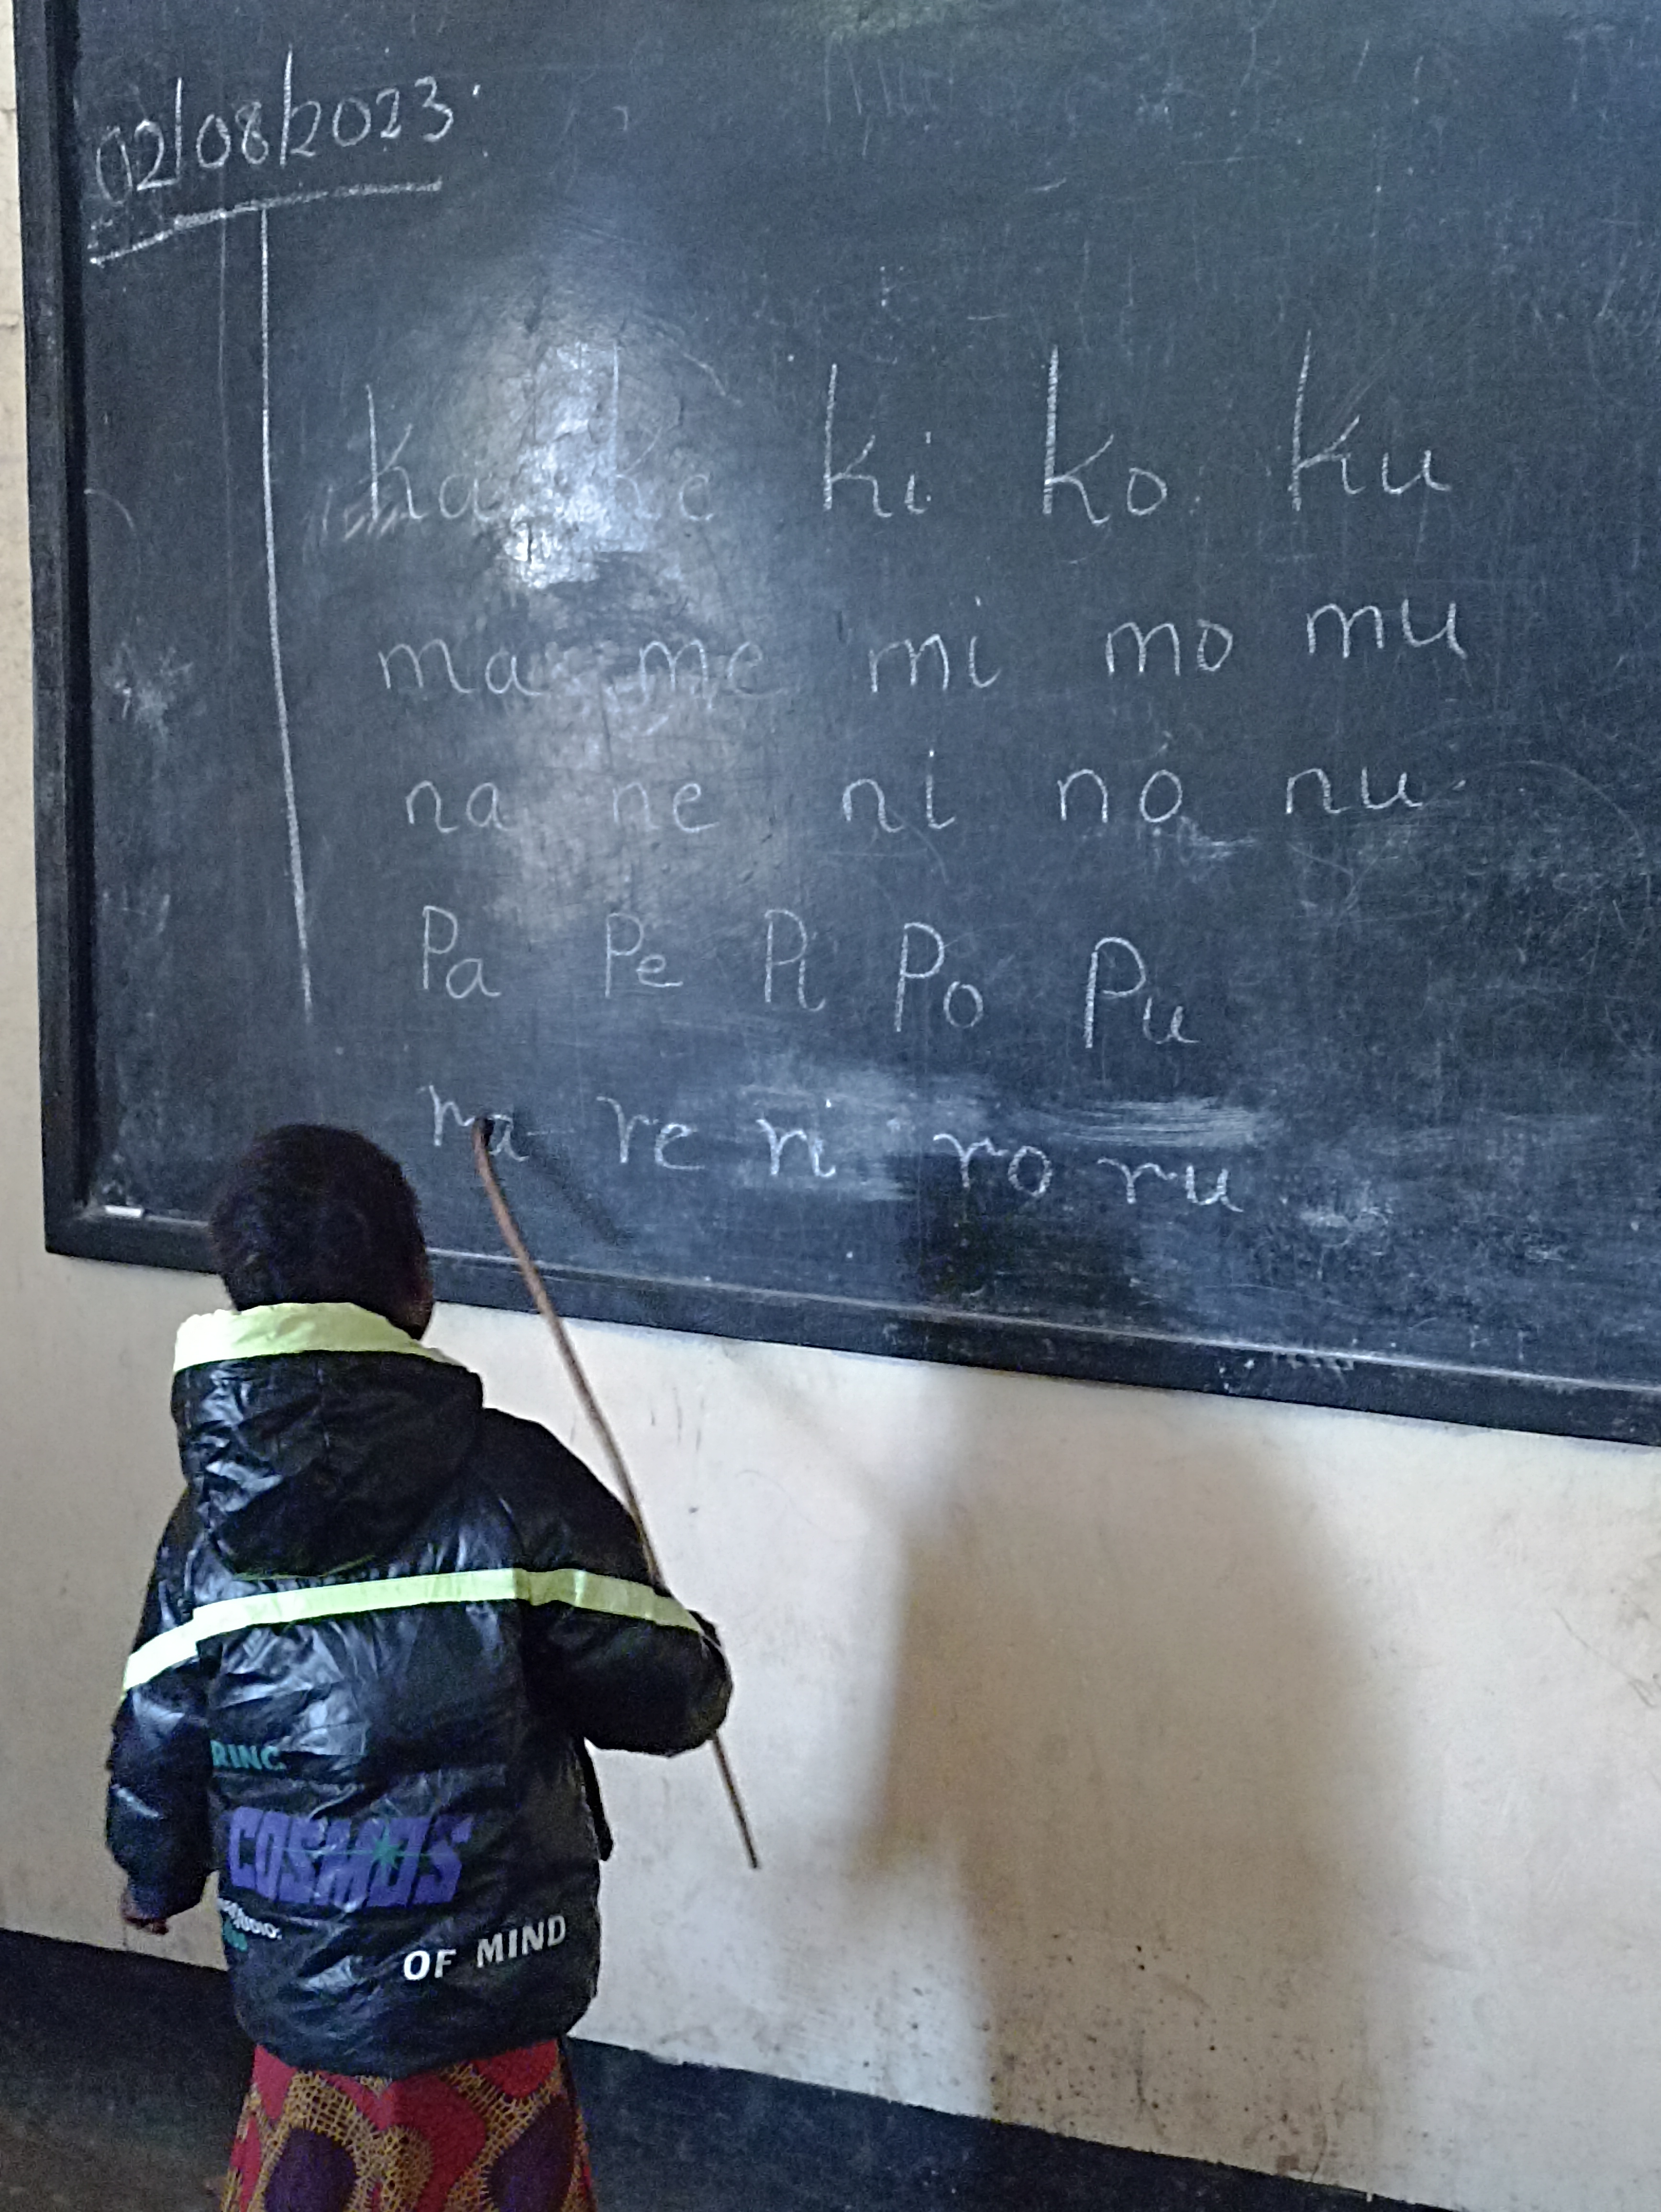 02/08/2023.
ka ke ki ko ku
ma me mi mo mu
na ne ni no nu
Pa Pe Pi Po Pu
ra re ri ro ru
COSMOS
OF MIND